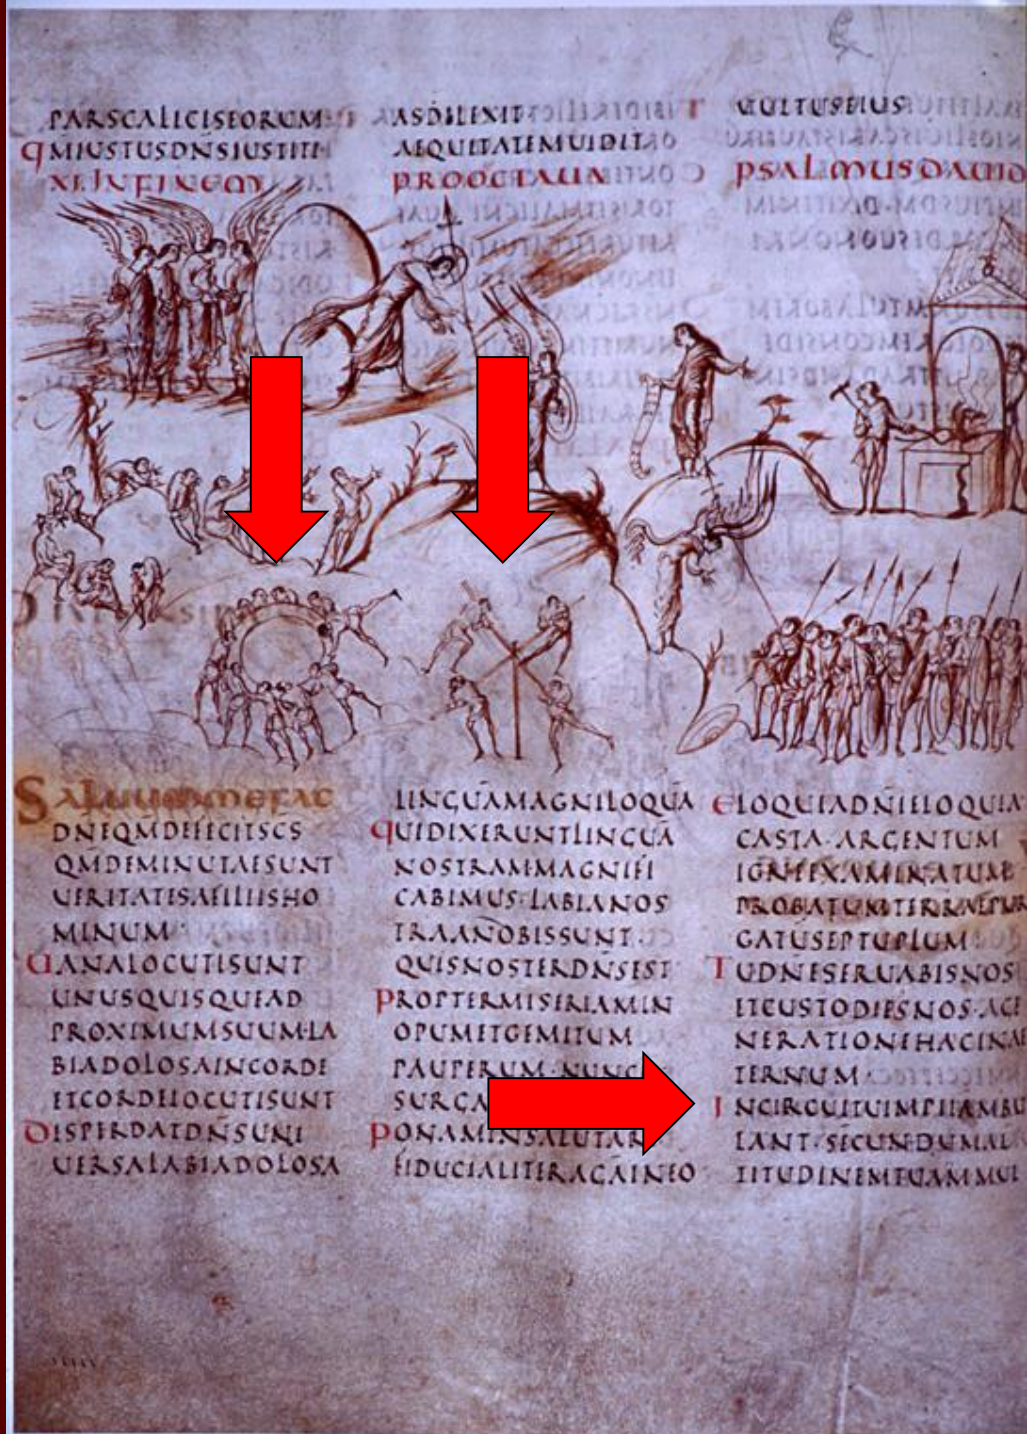 PARSCALICISEORUM
QMIUSTUSDNSIUSTITI
ASDILEXIT
AEQUITATEMUIDIT
UULTUSEIUS
XI INFINEM PROOCTAUA PSALMUSDAUID
SALUUMMEFAC
DNEQMDEFECITSCS
QMDEMINUTAESUNT
UERITATESAFILIISHO
MINUM
UANALOCUTISUNT
UNUSQUISQUEAD
PROXIMUMSUUM·LA
BIADOLOSAINCORDE
ETCORDELOCUTISUNT
DISPERDATDNSUNI
UERSALABIADOLOSA
LINGUAMAGNILOQUA
QUIDIXERUNTLINGUA
NOSTRAMMAGNIFI
CABIMUS·LABIANOS
TRAANOBISSUNT·
QUISNOSTERDNSEST
PROPTERMISERIAMIN
OPUMETGEMITUM
PAUPERUM·NUNC
PONAMINSALUTARI
FIDUCIALITERAGAINEO
ELOQUIADNIELOQUIA
CASTA·ARGENTUM
IGNEEXAMINATUM
PROBATUMTERRAEPUR
GATUSEPTUPLUM
TUDNESERUABISNOS
ETCUSTODIESNOS·AGE
NERATIONEHACINAE
TERNUM
INCIRCUITUIMPIIAMBU
LANT·SECUNDUMAL
TITUDINEMTUAMMUL